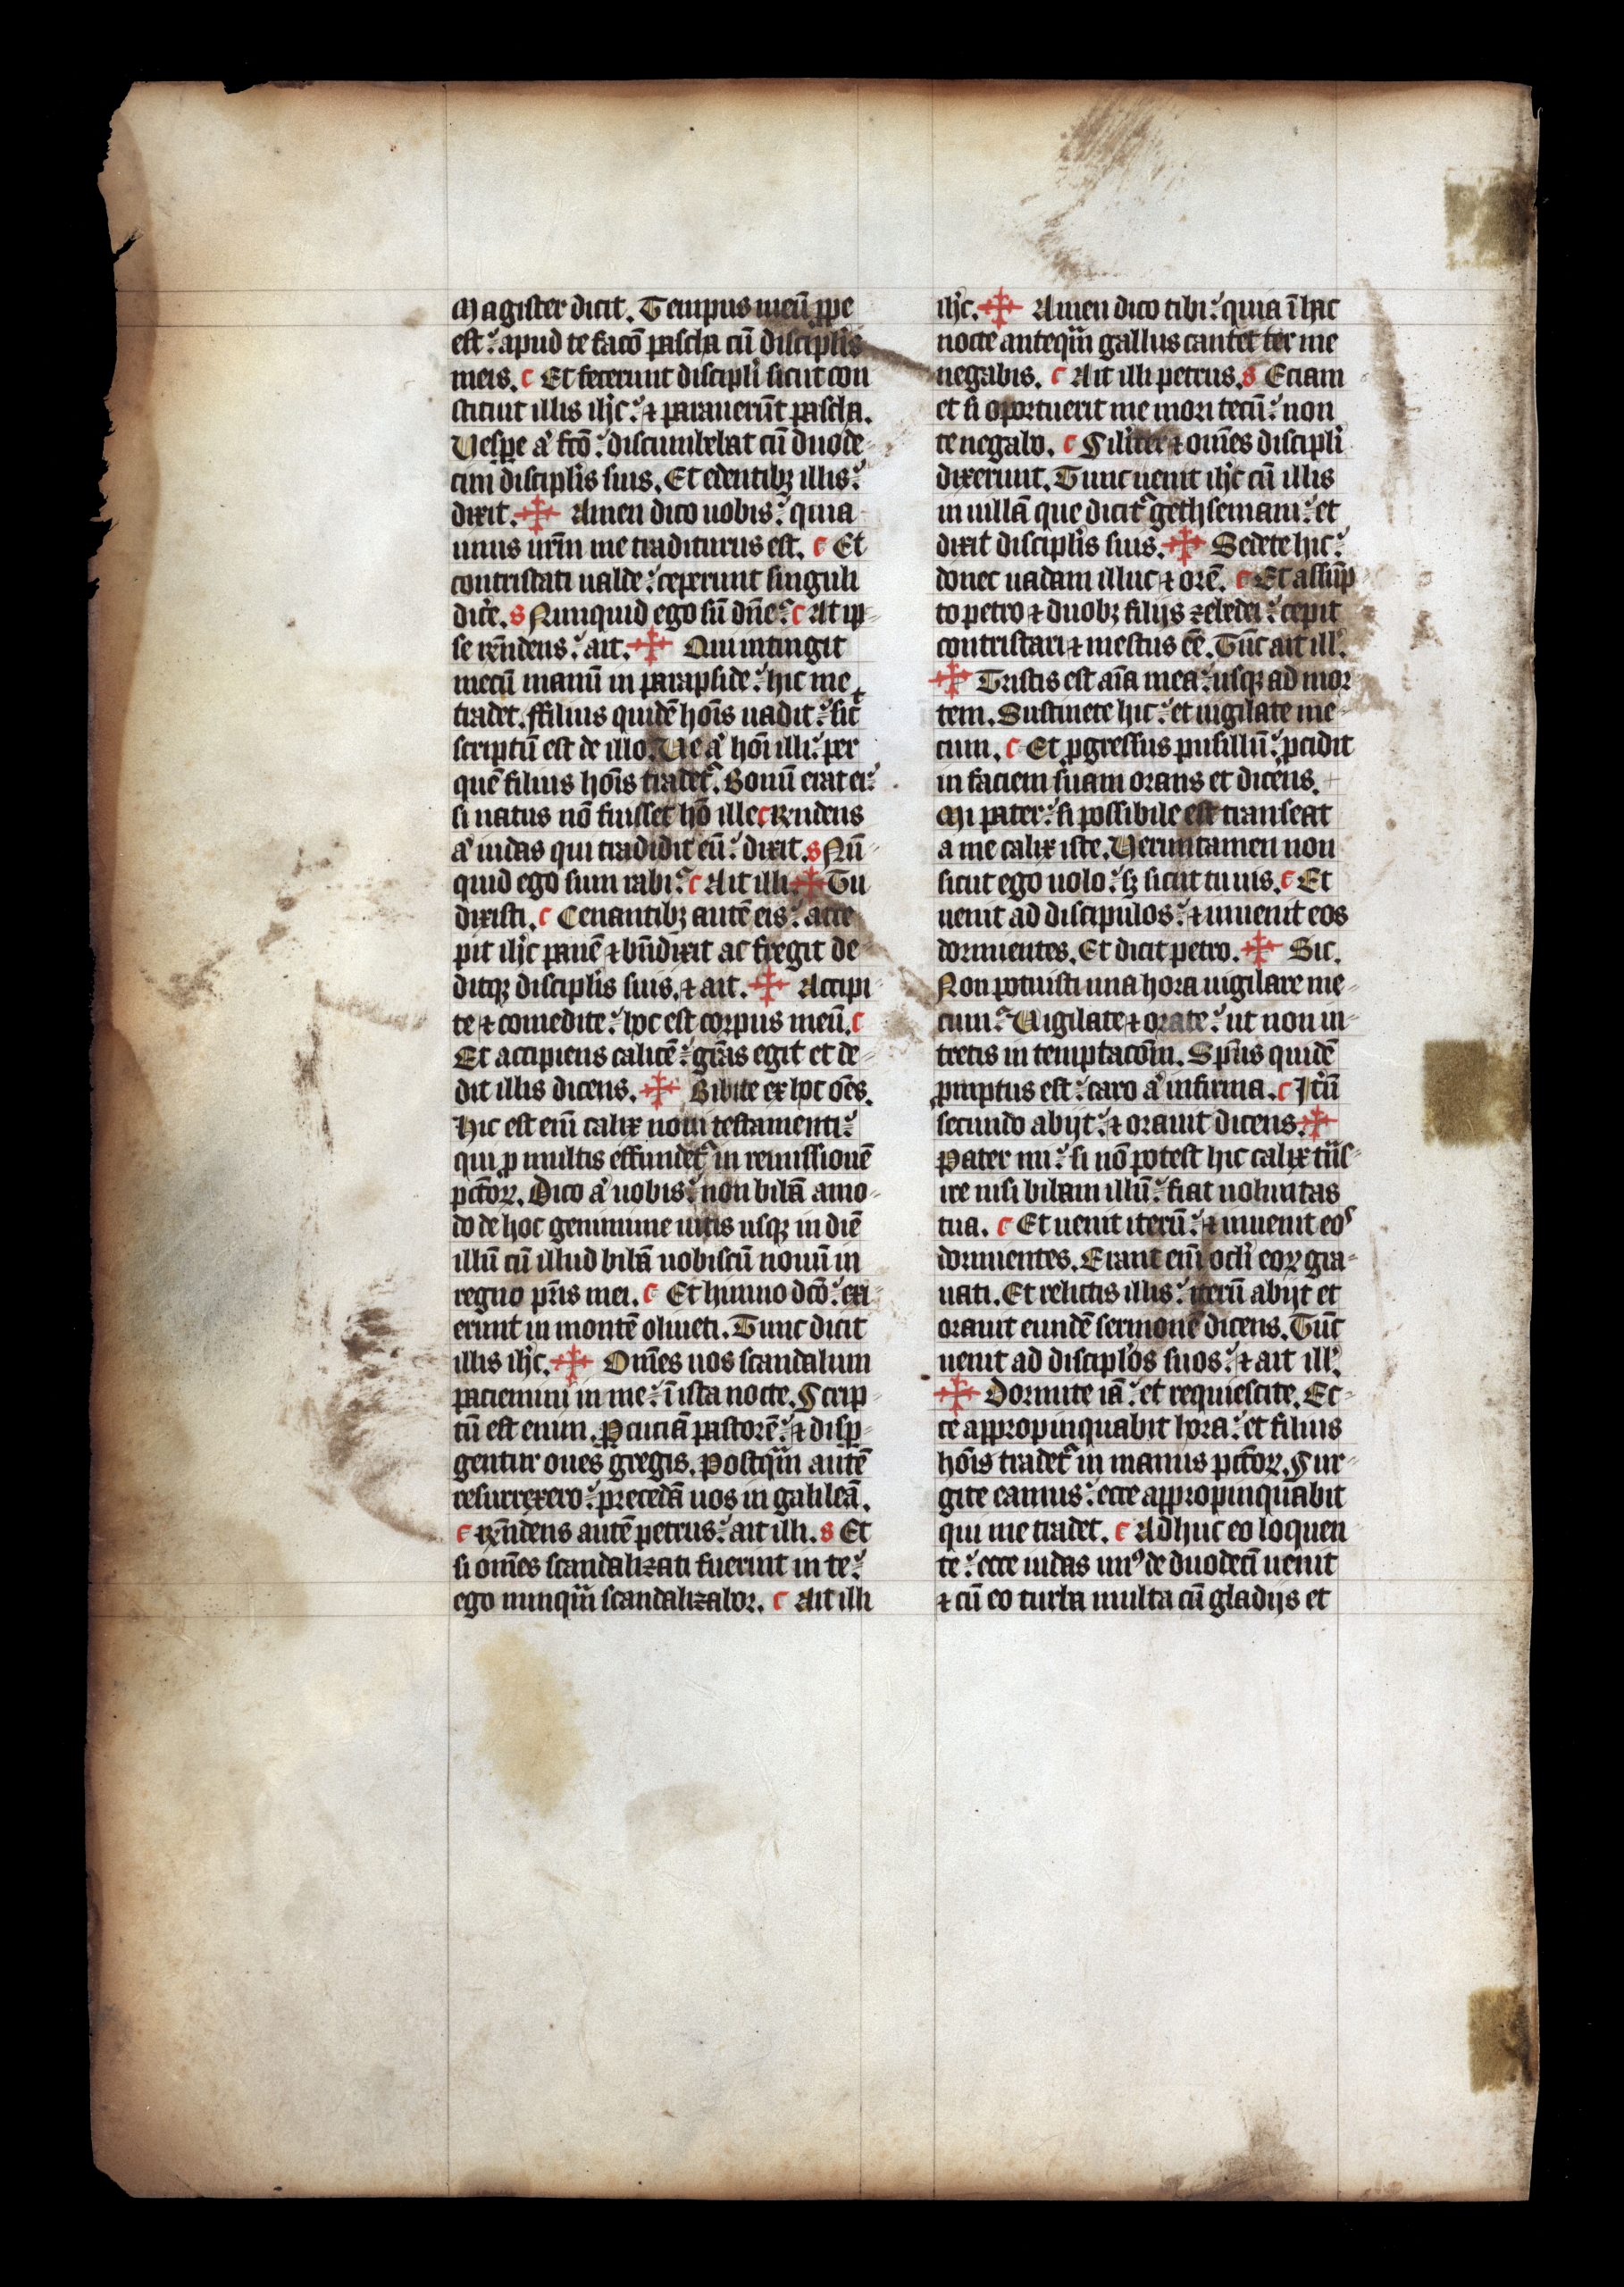 Magister dicit. Tempus meū ꝓpe
est: apud te facō pascha cū discipl̾is
meis. c Et fecerunt discipl̾i sicut con
stituit illis ih̾c: ⁊ parauerūt pascha.
Vesꝑe aͥ fc̄o: discumbebat cū duode-
cim discipl̾is suis. Et edentibꝫ illis:
dixit. ✠ Amen dico uobis: quia
unus ur̄m me traditurus est. c Et
contristati ualde: ceperunt singuli
dic̾e. s Nunquid ego sū dn̄e? c At ip-
se rn̄dens: ait. ✠ Qui intingit
mecū manū in parapside: hic me
tradet. ffilius quidē hoīs uadit: sic̾
scriptū est de illo. Ue aͥ hoī illi: per
quē filius hoīs tradet᷑. Bonū erat ei:
si natus nō fuisset hō ille c Rn̄dens
aͥ iudas qui tradidit eū: dixit. s Nū-
quid ego sum rabi? c Ait illi. ✠ Tu
dixisti. c Cenantibꝫ autē eis: acce
pit ih̾c panē ⁊ bn̄dixit ac fregit de
ditqꝫ discipl̾is suis. ⁊ ait. ✠ Accipi-
te ⁊ comedite: hoc est corpus meū. c
Et accipiens calicē: gr̄as egit et de-
dit illis dicens. ✠ Bibite ex hoc oēs.
Hic est enī calix noui testamenti:
qui ꝑ multis effundet᷑ in remissionē
pctōꝝ. Dico aͥ uobis: non bibā amo-
do de hoc genimine uitis usqꝫ in diē
illū cū illud bibā uobiscū nouū in
regno pr̄is mei. c Et himno dc̄o: exi-
erunt in montē oliueti. Tunc dicit
illis ih̾c. ✠ Om̄es uos scandalum
paciemini in me: ī ista nocte. Scrip-
tū est enim. Pcuciā pastorē: ⁊ disꝑ-
gentur oues gregis. Postqͣm autē
resurrexero: precedā uos in galileā.
c Rn̄dens autē petrus: ait illi. s Et
si om̄es scandalizati fuerint in te:
ego nunqͣm scandalizabor. c Ait illi
ih̾c. ✠ Amen dico tibi: quia ī hac
nocte anteqͣm gallus cantet ter me
negabis. c Ait illi petrus. s Eciam
et si oportuerit me mori tecū: non
te negabo. c Silīter ⁊ om̄es discipl̾i
dixerunt. Tunc uenit ih̾c cū illis
in uillā que dicit᷑ gethsemani: et
dixit discipl̾is suis. ✠ Sedete hic:
donec uadam illuc ⁊ orē. c Et assūp
to petro ⁊ duobꝫ filijs zebedei: cepit
contristari ⁊ mestus eē. Tūc ait ill̾.
✠ Tristis est aīa mea: usqꝫ ad mor
tem. Sustinete hic: et uigilate me-
cum. c Et ꝓgressus pusillū: ꝓcidit
in faciem suam orans et dicens.
Mi pater: si possibile est transeat
a me calix iste. Uerumtamen non
sicut ego uolo: sꝫ sicut tu uis. c Et
uenit ad discipulos: ⁊ inuenit eos
dormientes. Et dicit petro. ✠ Sic.
Non potuisti una hora uigilare me-
cum? Uigilate ⁊ orate: ut non in-
tretis in temptacōm. Spūs quidē
ꝓmptus est: caro aͥ infirma. c Itūz
secundo abijt: ⁊ orauit dicens. ✠
Pater mi: si nō potest hic calix tͣns-
ire nisi bibam illū: fiat uoluntas
tua. c Et uenit iterū: ⁊ inuenit eos
dormientes. Erant enī ocl̾i eoꝝ gra-
uati. Et relictis illis: iterū abijt et
orauit eundē sermonē dicens. Tūc
uenit ad discipl̾os suos: ⁊ ait ill̾.
✠ Dormite iā: et requiescite. Ec-
ce appropinquabit hora: et filius
hoīs tradet᷑ in manus pctōꝝ. Sur-
gite eamus: ecce appropinquabit
qui me tradet. c Adhuc eo loquen
te: ecce iudas unꝰ de duodecī uenit
⁊ cū eo turba multa cū gladijs et